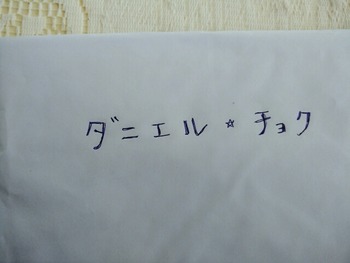 ダニエル☆チョク